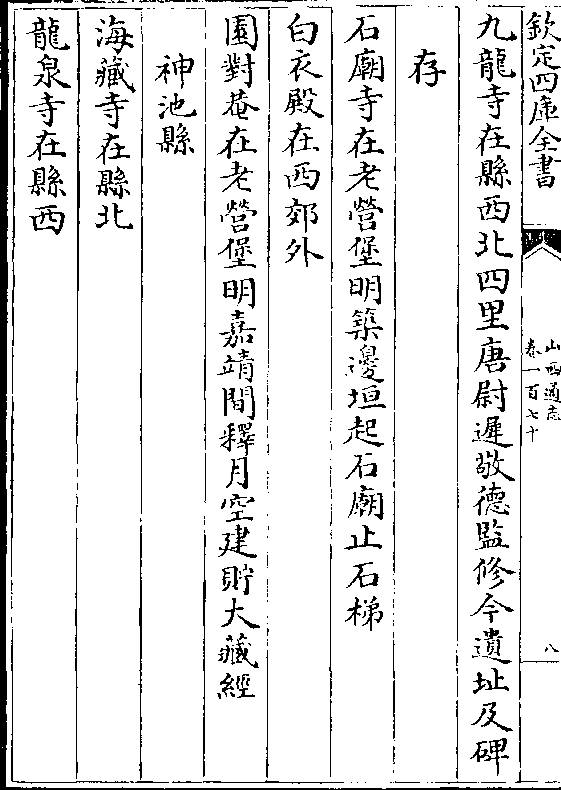 欽定四庫全書
山西通志
卷一百七十
八
九龍寺在縣西北四里唐尉遲敬德監修今遺址及碑
存
石廟寺在老營堡明築邊垣起石廟止石梯
白衣殿在西郊外
圓對菴在老營堡明嘉靖間釋月空建貯大藏經
神池縣
海藏寺在縣北
龍泉寺在縣西